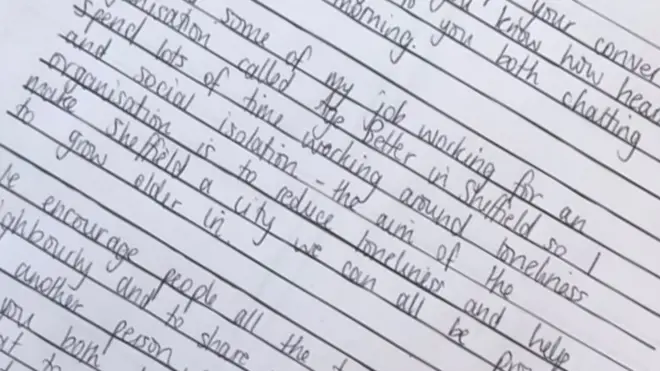 your conver
you know how hear
to you both chatting
morning.
some of my job working for an
nisation called Age Better in Sheffield so I
spend lots of time working around loneliness
and social isolation - the aim of the
organisation is to reduce loneliness and help
make Sheffield a city we can all be pro
to grow older in.
e encourage people all the t
ighbourly and to share
another person
you both
to